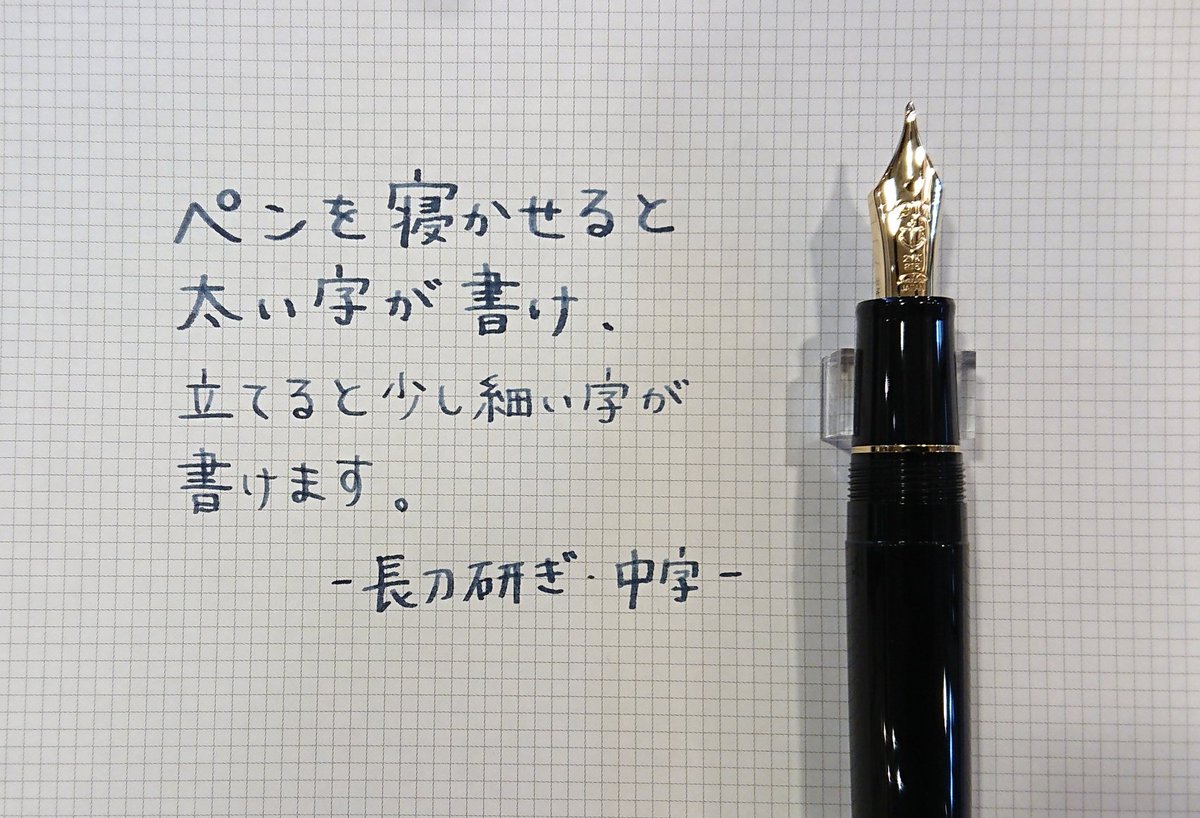 ペンを寝かせると
太い字が書け、
立てると少し細い字が
書けます。
-長刀研ぎ・中字-
21K